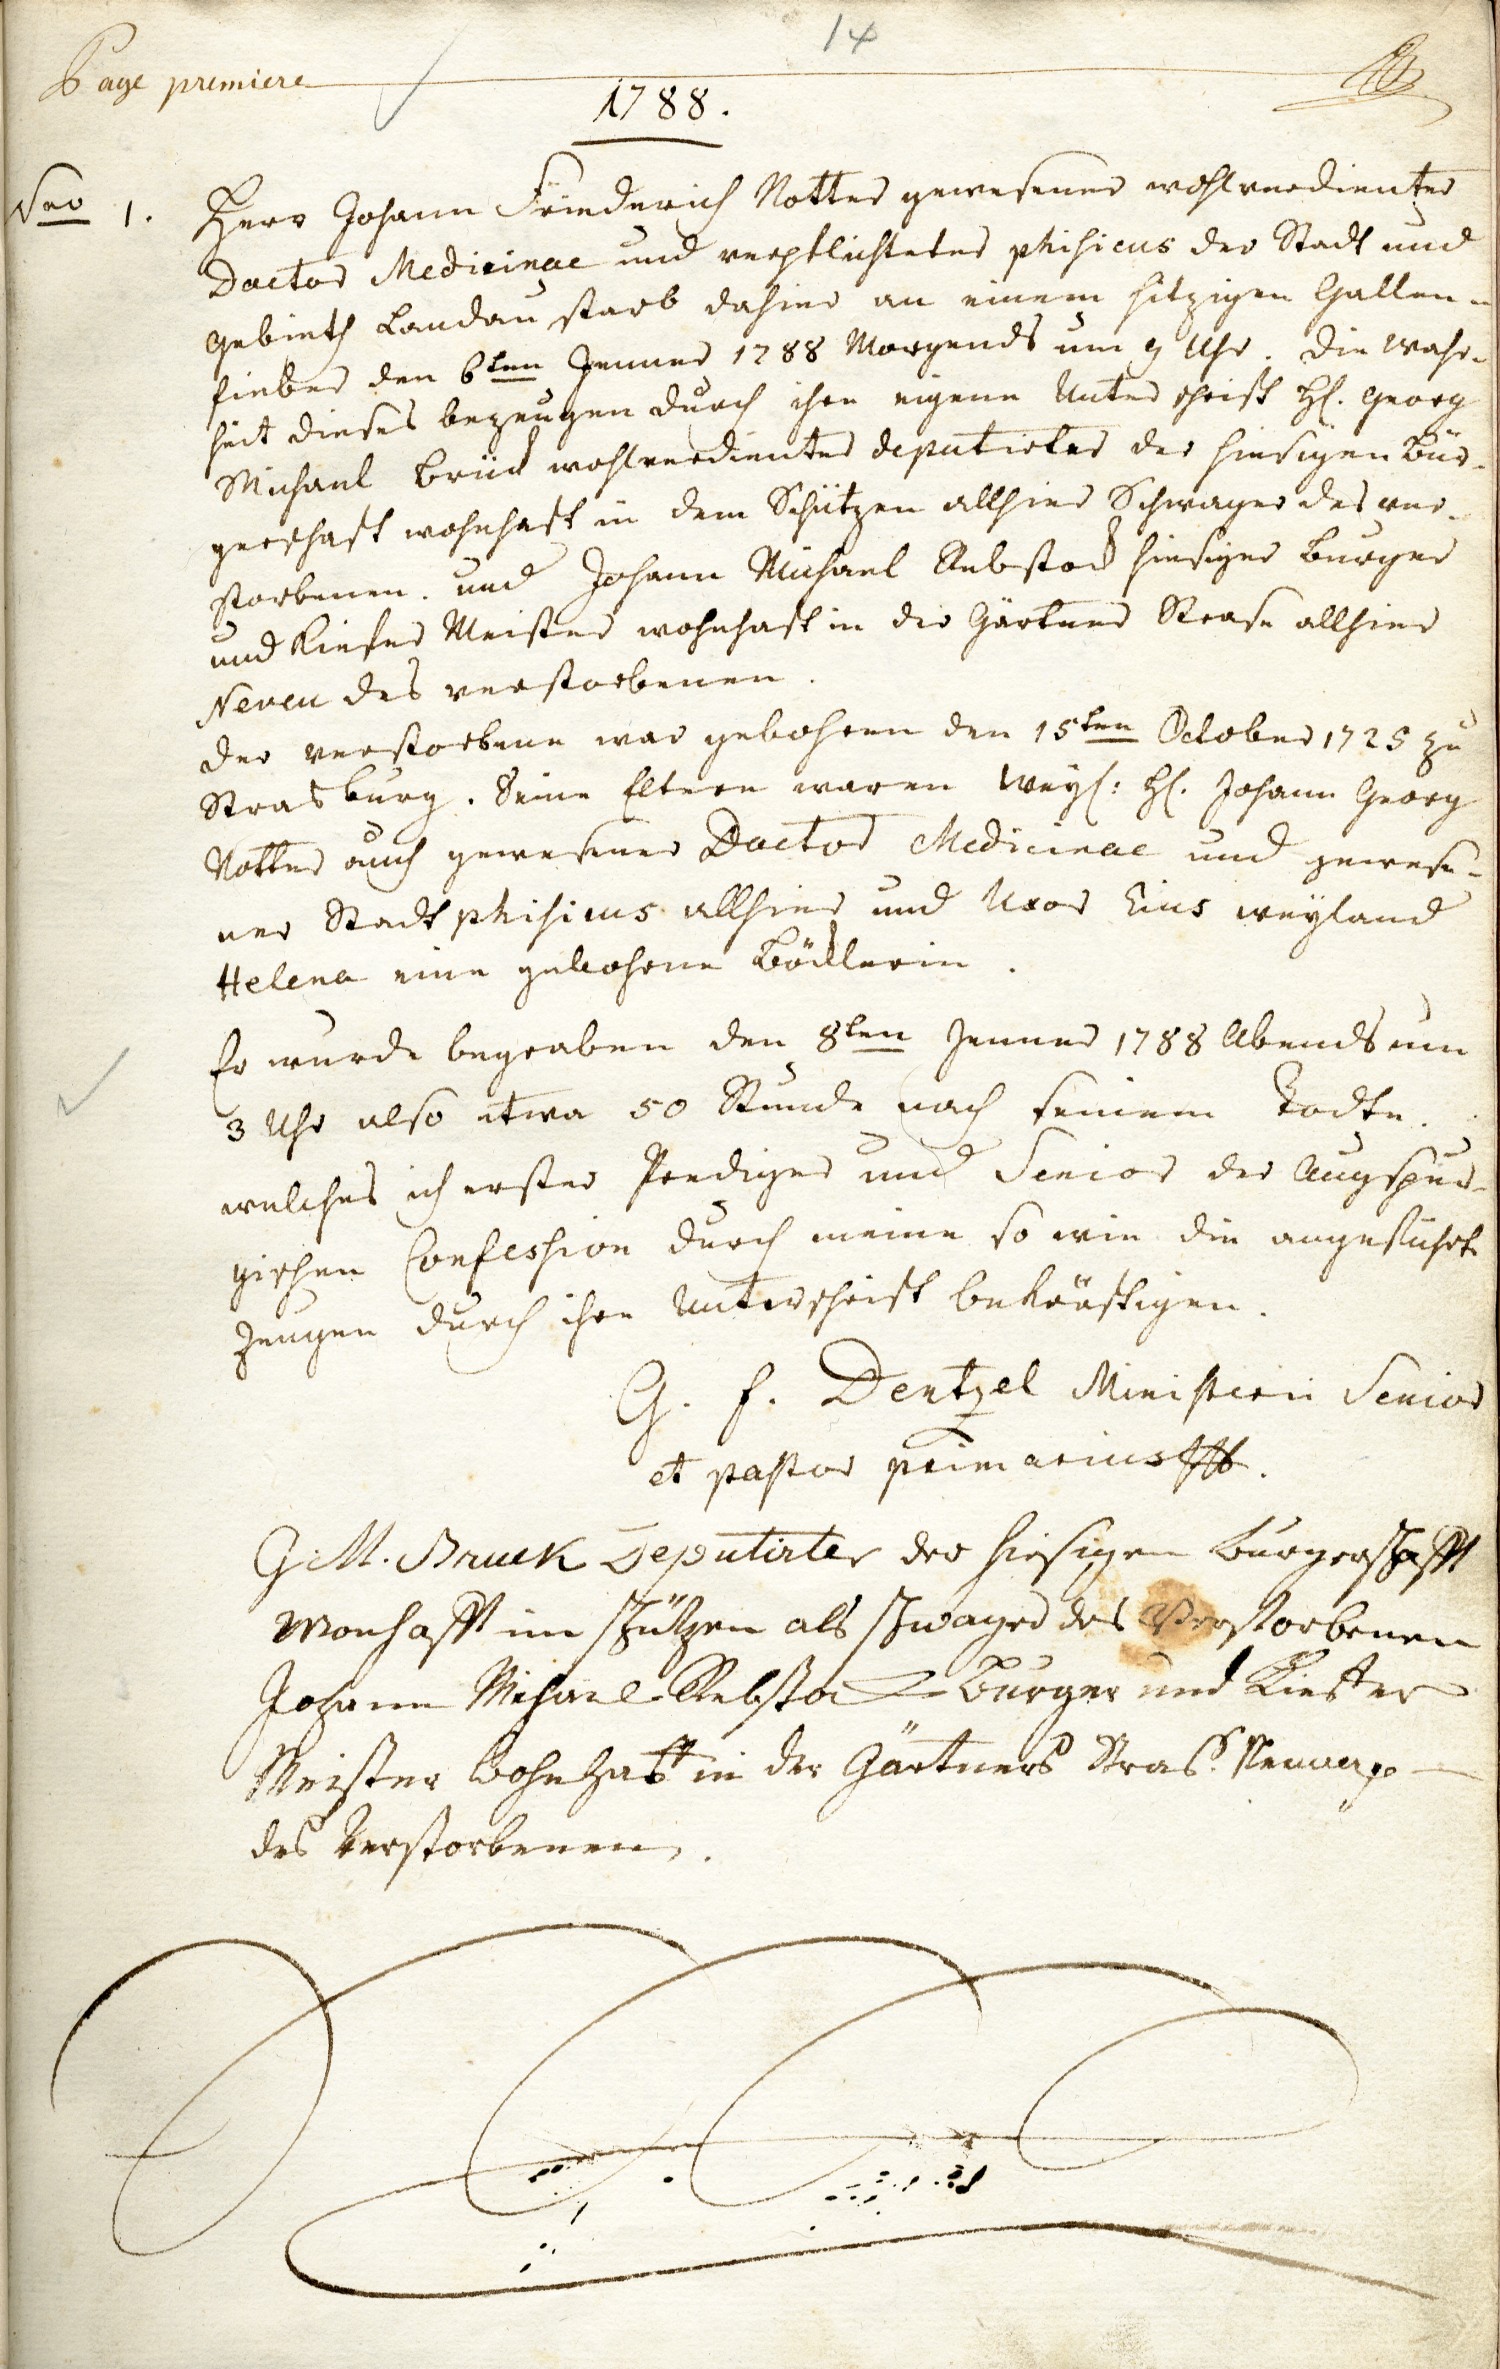 14
Page premiere
1788.
Nro 1. Herr Johann Friederich Notter gewesener wohlverdienter
Doctor Medicinae und verpflichteter phisicus der Stadt und
gebieth Landau starb dahier an einem hitzigen Gallen-
fieber den 6ten Jenner 1788 Morgends um 9 Uhr. Die Wahr-
heit dieses bezeugen durch ihre eigene Unterschrift H. Georg
Michael Brück wohlverdienter deputirter der hiesigen Bür-
gerschaft wohnhaft in dem Schützen allhier Schwager des ver-
storbenen. und Johann Michael Rebstock hiesiger Burger
und Kiefer Meister wohnhaft in der Gärtner Strase allhier
Neveu des verstorbenen.
Der verstorbene war gebohren den 15ten October 1725 zu
Strasburg. Seine Eltern waren Weyl: H. Johann Georg
Notter auch gewesener Doctor Medicinae und gewese-
ner Stadt phisicus allhier und Uxor Eius weyland
Helena eine gebohrne Böcklerin.
Er wurde begraben den 8ten Jenner 1788 Abends um
3 Uhr also etwa 50 Stunde nach seinem Todte.
welches ich erster Prediger und Senior der Augspur-
gischen Confession durch meine so wie die angeführte
Zeugen durch ihre Unterschrift bekräftigen.
G. F. Dentzel Ministerii Senior
et pastor primarius
G: M. Bruck Deputirter der hiesigen burgerschafft
Wonhafft im schützen als schwager des Verstorbenen
Johann Michael Rebstock Burger und Kieffer
Meister Wohnhaft in der Gärtners Stras.
des Verstorbenen.